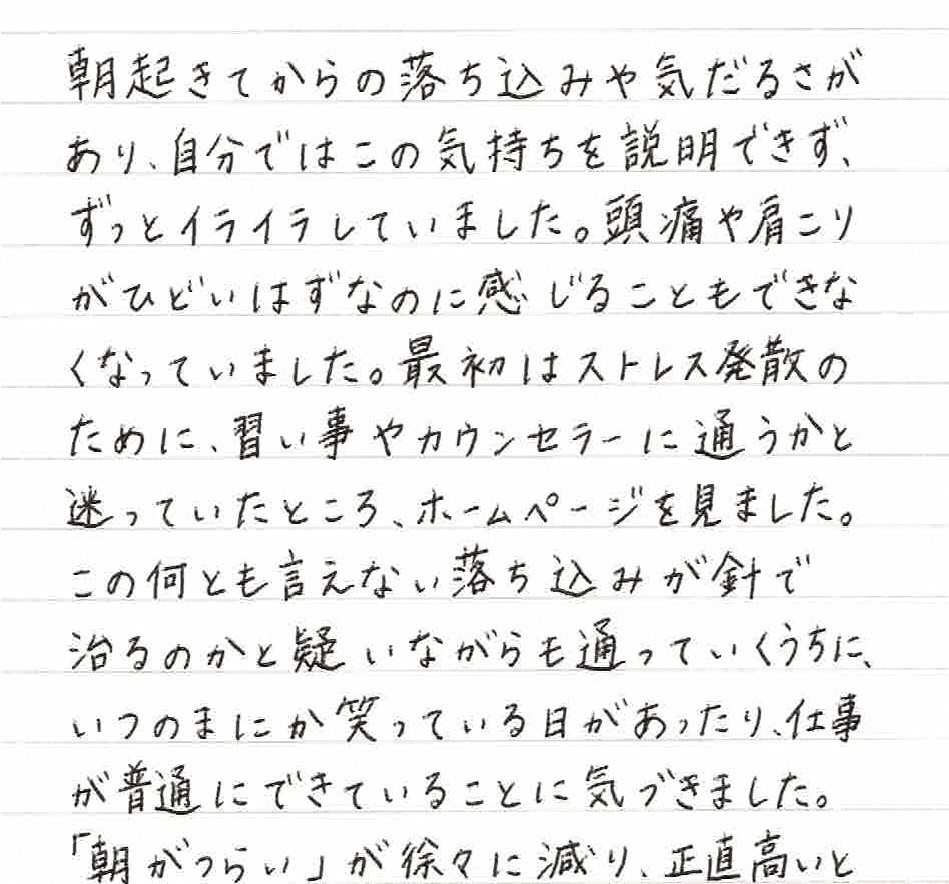 朝起きてからの落ち込みや気だるさが
あり、自分ではこの気持ちを説明できず、
ずっとイライラしていました。頭痛や肩こり
がひどいはずなのに感じることもできな
くなっていました。最初はストレス発散の
ために、習い事やカウンセラーに通うかと
迷っていたところ、ホームページを見ました。
この何とも言えない落ち込みが針で
治るのかと疑いながらも通っていくうちに、
いつのまにか笑っている日があったり、仕事
が普通にできていることに気づきました。
「朝がつらい」が徐々に減り、正直高いと